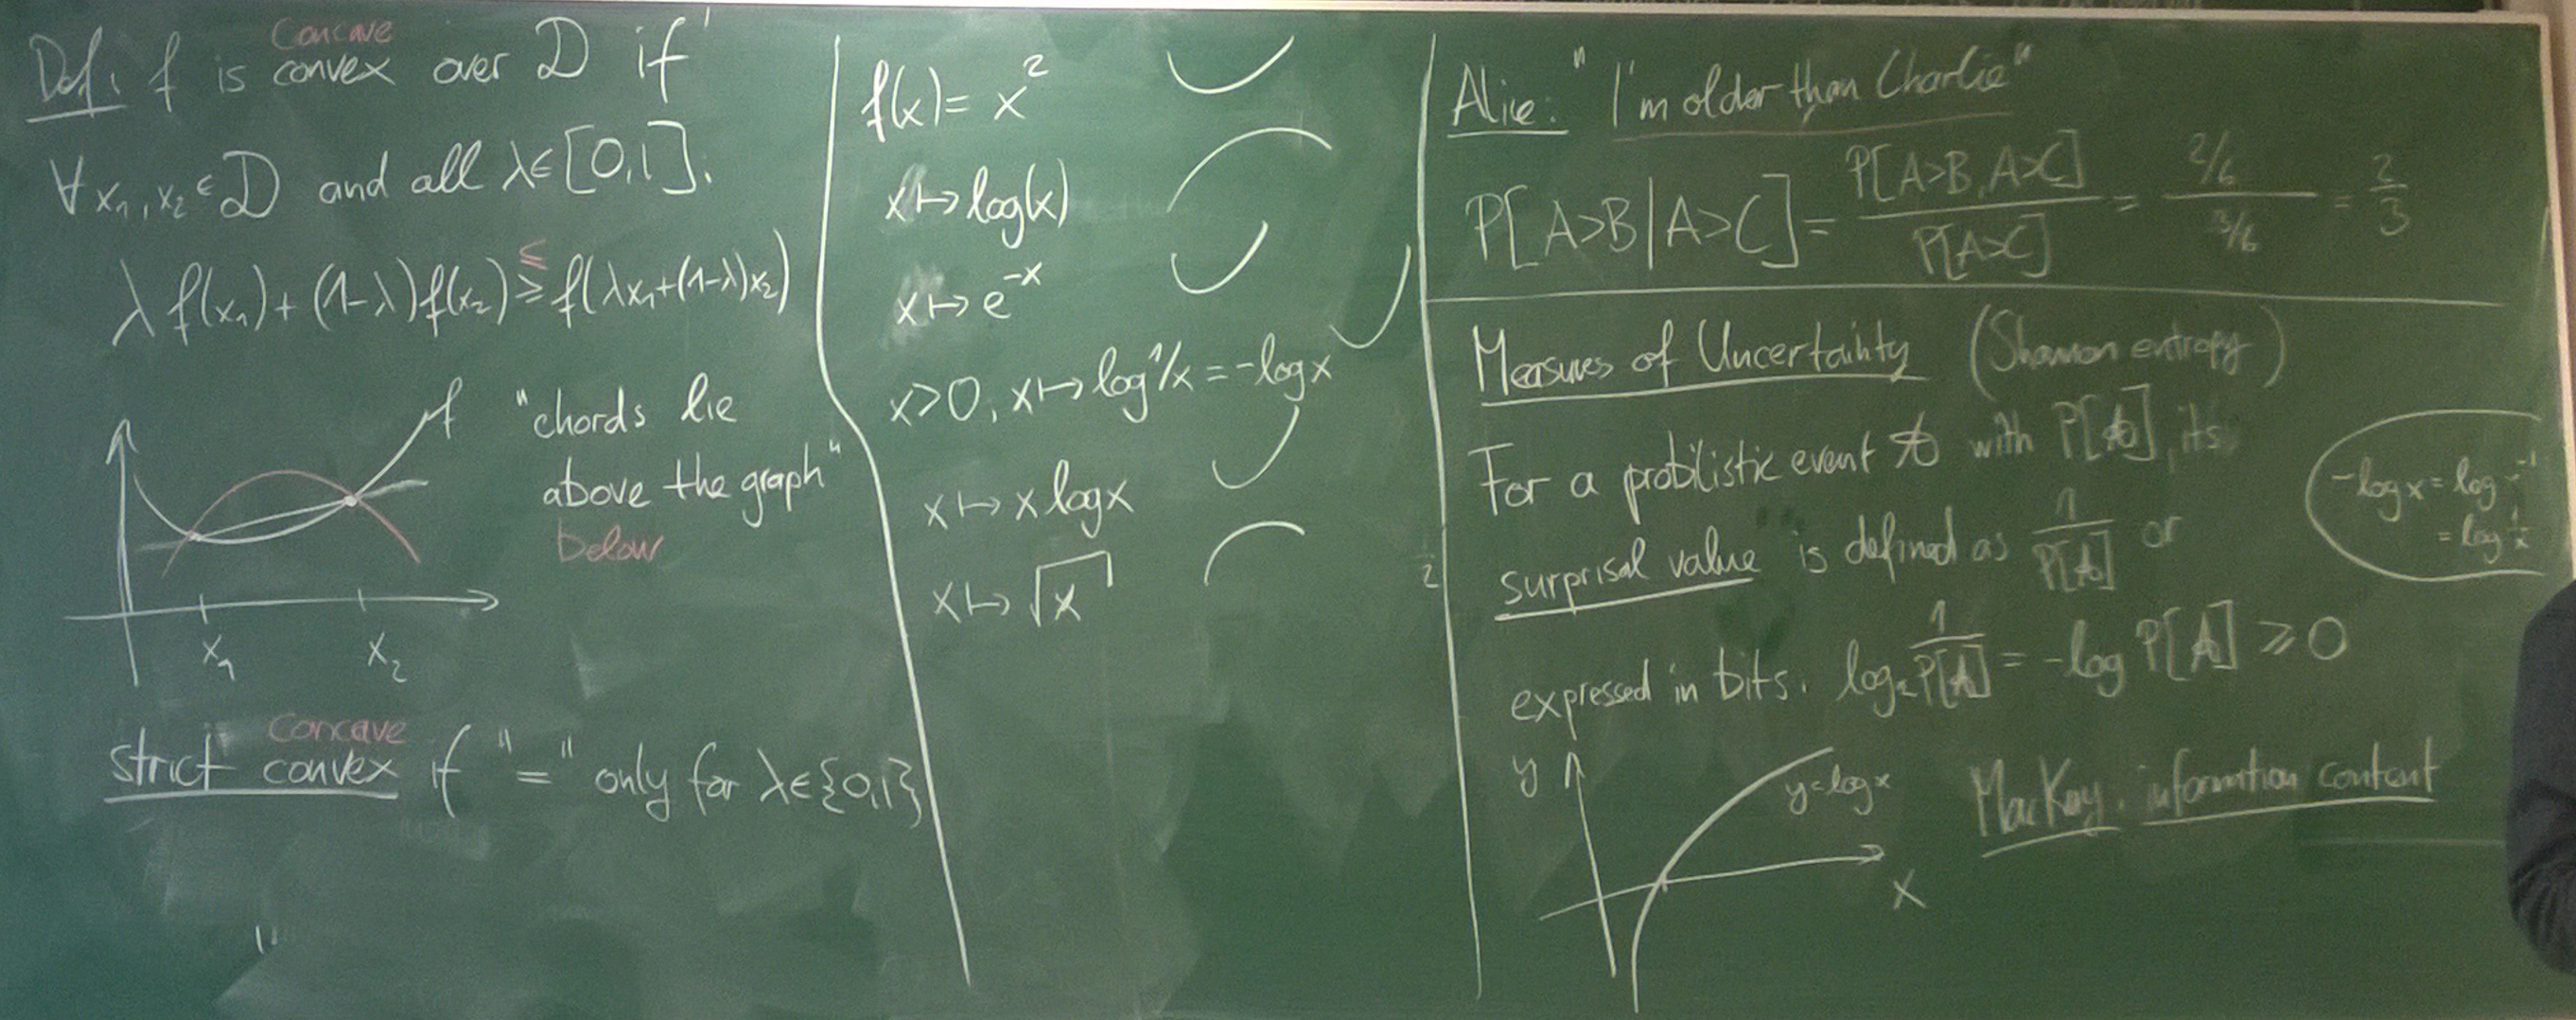 Concave
Def: f is convex over D if
∀ x₁, x₂ ∈ D and all λ∈[0,1].
≤
λ f(x₁) + (1-λ) f(x₂) ≥ f(λx₁+(1-λ)x₂)
f
"chords lie
above the graph"
below
x₁ x₂
Concave
strict convex if "=" only for λ∈{0,1}
f(x) = x²
x ↦ log(x)
x ↦ e^-x
x>0, x ↦ log 1/x = -log x
x ↦ x log x
x ↦ √x
Alice: "I'm older than Charlie"
P[A>B|A>C] = P[A>B, A>C] / P[A>C] = 2/6 / 3/6 = 2/3
Measures of Uncertainty (Shannon entropy)
For a probilistic event A with P[A], its
surprisal value is defined as 1/P[A] or
expressed in bits. log₂ 1/P[A] = -log P[A] ≥ 0
-log x = log
= log 1/x
y
y=log x
x
MacKay: information content